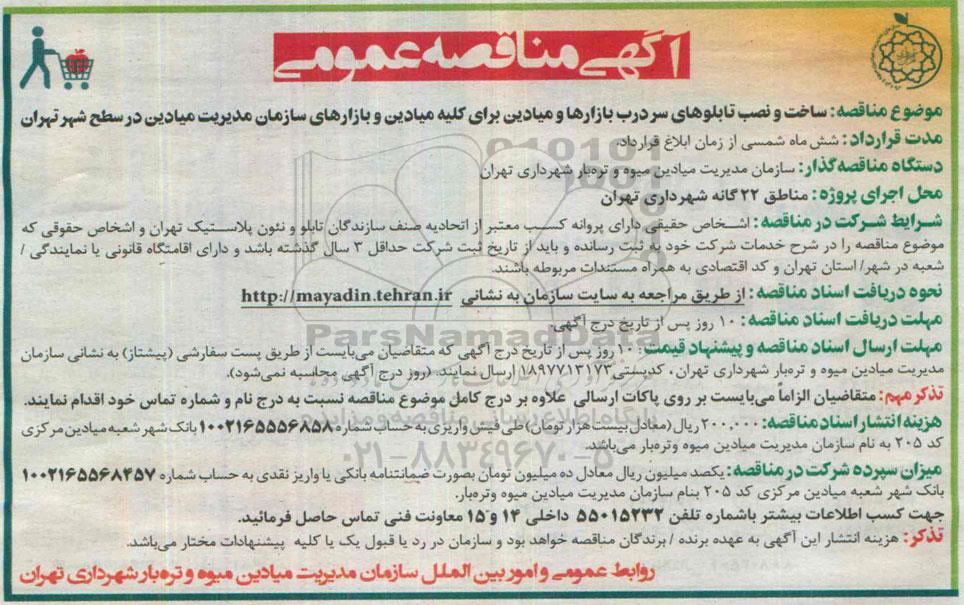 آگهی مناقصه عمومی
موضوع مناقصه: ساخت و نصب تابلوهای سر درب بازارها و میادین برای کلیه میادین و بازارهای سازمان مدیریت میادین در سطح شهر تهران
مدت قرارداد: شش ماه شمسی از زمان ابلاغ قرارداد.
دستگاه مناقصه‌گذار: سازمان مدیریت میادین میوه و تره‌بار شهرداری تهران
محل اجرای پروژه: مناطق ۲۲ گانه شهرداری تهران
شرایط شرکت در مناقصه: اشخاص حقیقی دارای پروانه کسب معتبر از اتحادیه صنف سازندگان تابلو و نئون پلاستیک تهران و اشخاص حقوقی که
موضوع مناقصه را در شرح خدمات شرکت خود به ثبت رسانده و باید از تاریخ ثبت شرکت حداقل ۳ سال گذشته باشد و دارای اقامتگاه قانونی یا نمایندگی /
شعبه در شهر/ استان تهران و کد اقتصادی به همراه مستندات مربوطه باشند.
نحوه دریافت اسناد مناقصه: از طریق مراجعه به سایت سازمان به نشانی http://mayadin.tehran.ir
مهلت دریافت اسناد مناقصه: ۱۰ روز پس از تاریخ درج آگهی.
مهلت ارسال اسناد مناقصه و پیشنهاد قیمت: ۱۰ روز پس از تاریخ درج آگهی که متقاضیان می‌بایست از طریق پست سفارشی (پیشتاز) به نشانی سازمان
مدیریت میادین میوه و تره‌بار شهرداری تهران، کدپستی ۱۸۹۷۷۱۳۱۷۳ ارسال نمایند. (روز درج آگهی محاسبه نمی‌شود).
تذکر مهم: متقاضیان الزاماً می‌بایست بر روی پاکات ارسالی علاوه بر درج کامل موضوع مناقصه نسبت به درج نام و شماره تماس خود اقدام نمایند.
هزینه انتشار اسناد مناقصه: ۲۰۰,۰۰۰ ریال (معادل بیست هزار تومان) طی فیش واریزی به حساب شماره ۱۰۰۲۱۶۵۵۵۶۸۵۸ بانک شهر شعبه میادین مرکزی
کد ۲۰۵ به نام سازمان مدیریت میادین میوه وتره‌بار می‌باشد.
میزان سپرده شرکت در مناقصه: یکصد میلیون ریال معادل ده میلیون تومان بصورت ضمانتنامه بانکی یا واریز نقدی به حساب شماره ۱۰۰۲۱۶۵۵۶۸۴۵۷
بانک شهر شعبه میادین مرکزی کد ۲۰۵ بنام سازمان مدیریت میادین میوه وتره‌بار.
جهت کسب اطلاعات بیشتر باشماره تلفن ۵۵۰۱۵۲۳۲ داخلی ۱۴ و ۱۵ معاونت فنی تماس حاصل فرمائید.
تذکر: هزینه انتشار این آگهی به عهده برنده / برندگان مناقصه خواهد بود و سازمان در رد یا قبول یک یا کلیه پیشنهادات مختار می‌باشد.
روابط عمومی و امور بین الملل سازمان مدیریت میادین میوه و تره‌بار شهرداری تهران
ParsNamadData
پایگاه اطلاع رسانی مناقصه و مزایده
۰۲۱-۸۸۳۴۹۶۷۰-۵